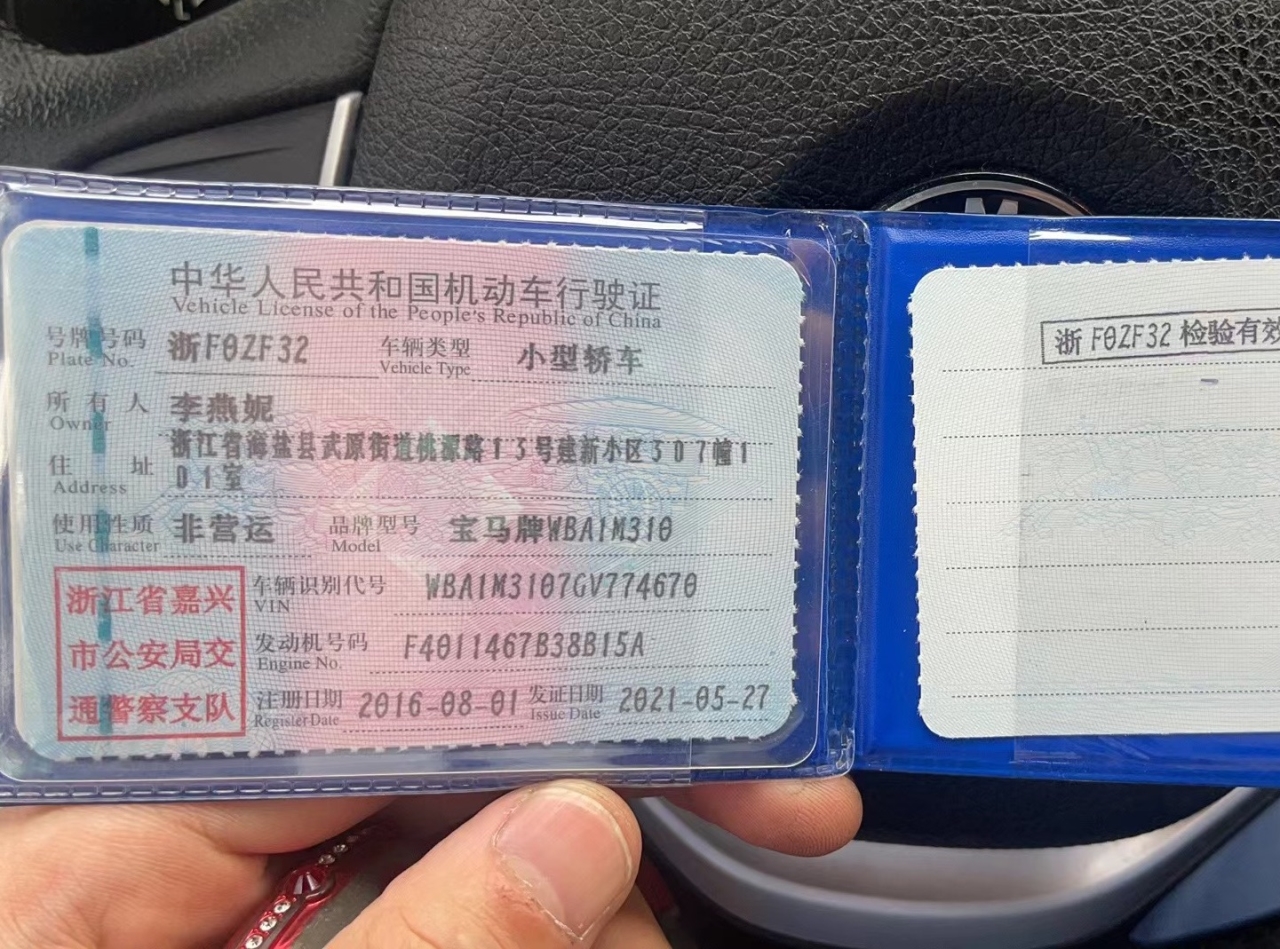 中华人民共和国机动车行驶证
Vehicle License of the People's Republic of China
号牌号码 浙F0ZF32 车辆类型 小型轿车
Plate No. Vehicle Type
所有人 李燕妮
Owner
住址 浙江省海盐县武原街道桃源路13号建新小区307幢1
Address 01室
使用性质 非营运 品牌型号 宝马牌WBA1M310
Use Character Model
浙江省嘉兴
市公安局交
通警察支队
车辆识别代号 WBA1M3107GV774670
VIN
发动机号码 F4011467B38B15A
Engine No.
注册日期 2016-08-01 发证日期 2021-05-27
Register Date Issue Date
浙F0ZF32检验有效